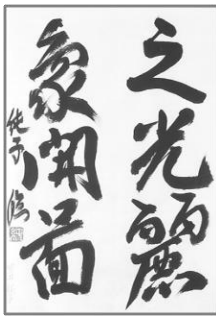 之光麗
象開圖
純子臨